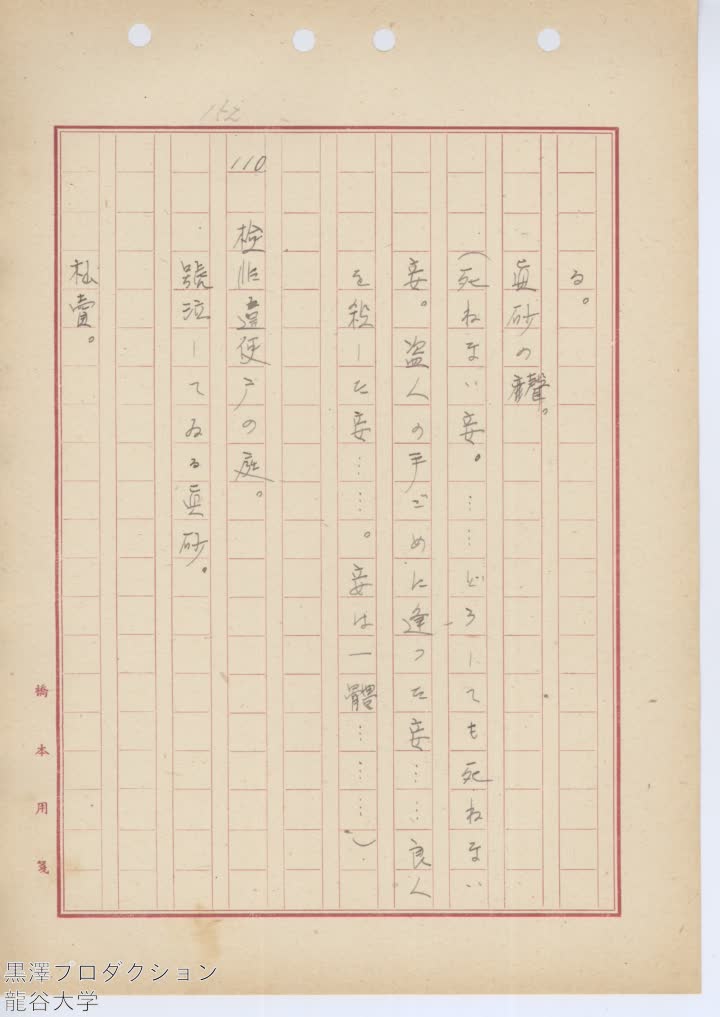 る。
眞砂の聲。
(死ねない妾。……どうしても死ねない
妾。盗人の手ごめに逢つた妾……良人
を殺した妾……。妾は一體………)
110
検非違使庁の庭。
號泣してゐる眞砂。
杣賣。
橋本用箋
黒澤プロダクション
龍谷大学